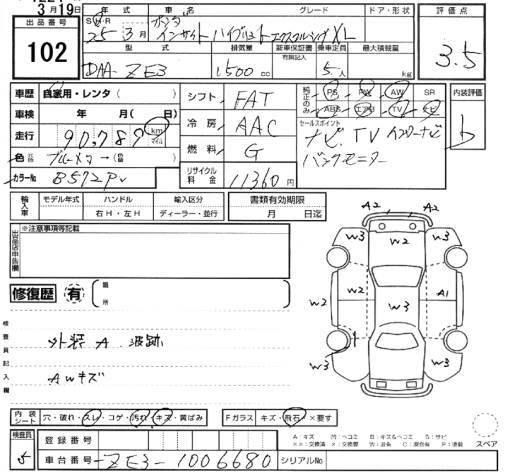 3月19日
出品番号 年式 車名 グレード ドア・形状 評価点
102
S H・R 25年3月 ホンダ インサイト ハイブリット エクスクルーシブ XL 3.5
型式 排気量 新車保証書 有無記入 乗車定員 最大積載量
DAA-ZE3 1500cc 5人 kg
車歴 自家用・レンタ( ) シフト FAT 純正のみ PS PW AW SR 内装評価
車検 年 月(日) ABS エアB TV ナビ
走行 90,787 km マイル 冷房 AAC セールスポイント b
ナビ TV
色 元色 (前色) 燃料 G バックモニター
カラーNo B572Pv リサイクル料金 11360円
輸入車 モデル年式 ハンドル 輸入区分 書類有効期限
右H・左H ディーラー・並行 月 日迄
出品店申告欄 ※注意事項等記載
A2 A2
W3 W2 W3
修復歴 有 箇所
W2 W2 W3 A1
検査員記入欄
外装 A 波跡
W3 W2 W3
AWキズ
内装シート 穴・破れ・スレ・コゲ・汚れ・キズ・黄ばみ Fガラス キズ・飛石・×要す
スペア
検査員 登録番号
A:キズ M:ヘコミ B:キズ&ヘコミ S:サビ
5 車台番号 ZE3-1006680 シリアルNo